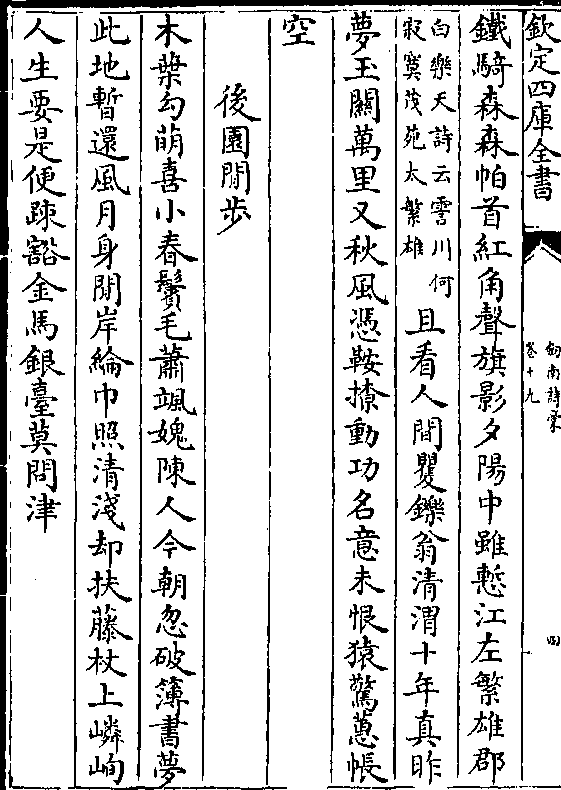 欽定四庫全書
劍南詩稾
卷十九
四
鐵騎森森帕首紅角聲旗影夕陽中雖慙江左繁雄郡
白樂天詩云霅川何
寂寞茂苑太繁雄
且看人間矍鑠翁清渭十年真昨
夢玉關萬里又秋風憑鞍撩動功名意未恨猿驚蕙帳
空
後園閒步
木葉勾萌喜小春鬢毛蕭颯媿陳人今朝忽破簿書夢
此地暫還風月身閒岸綸巾照清淺却扶藤杖上嶙峋
人生要是便疎豁金馬銀臺莫問津